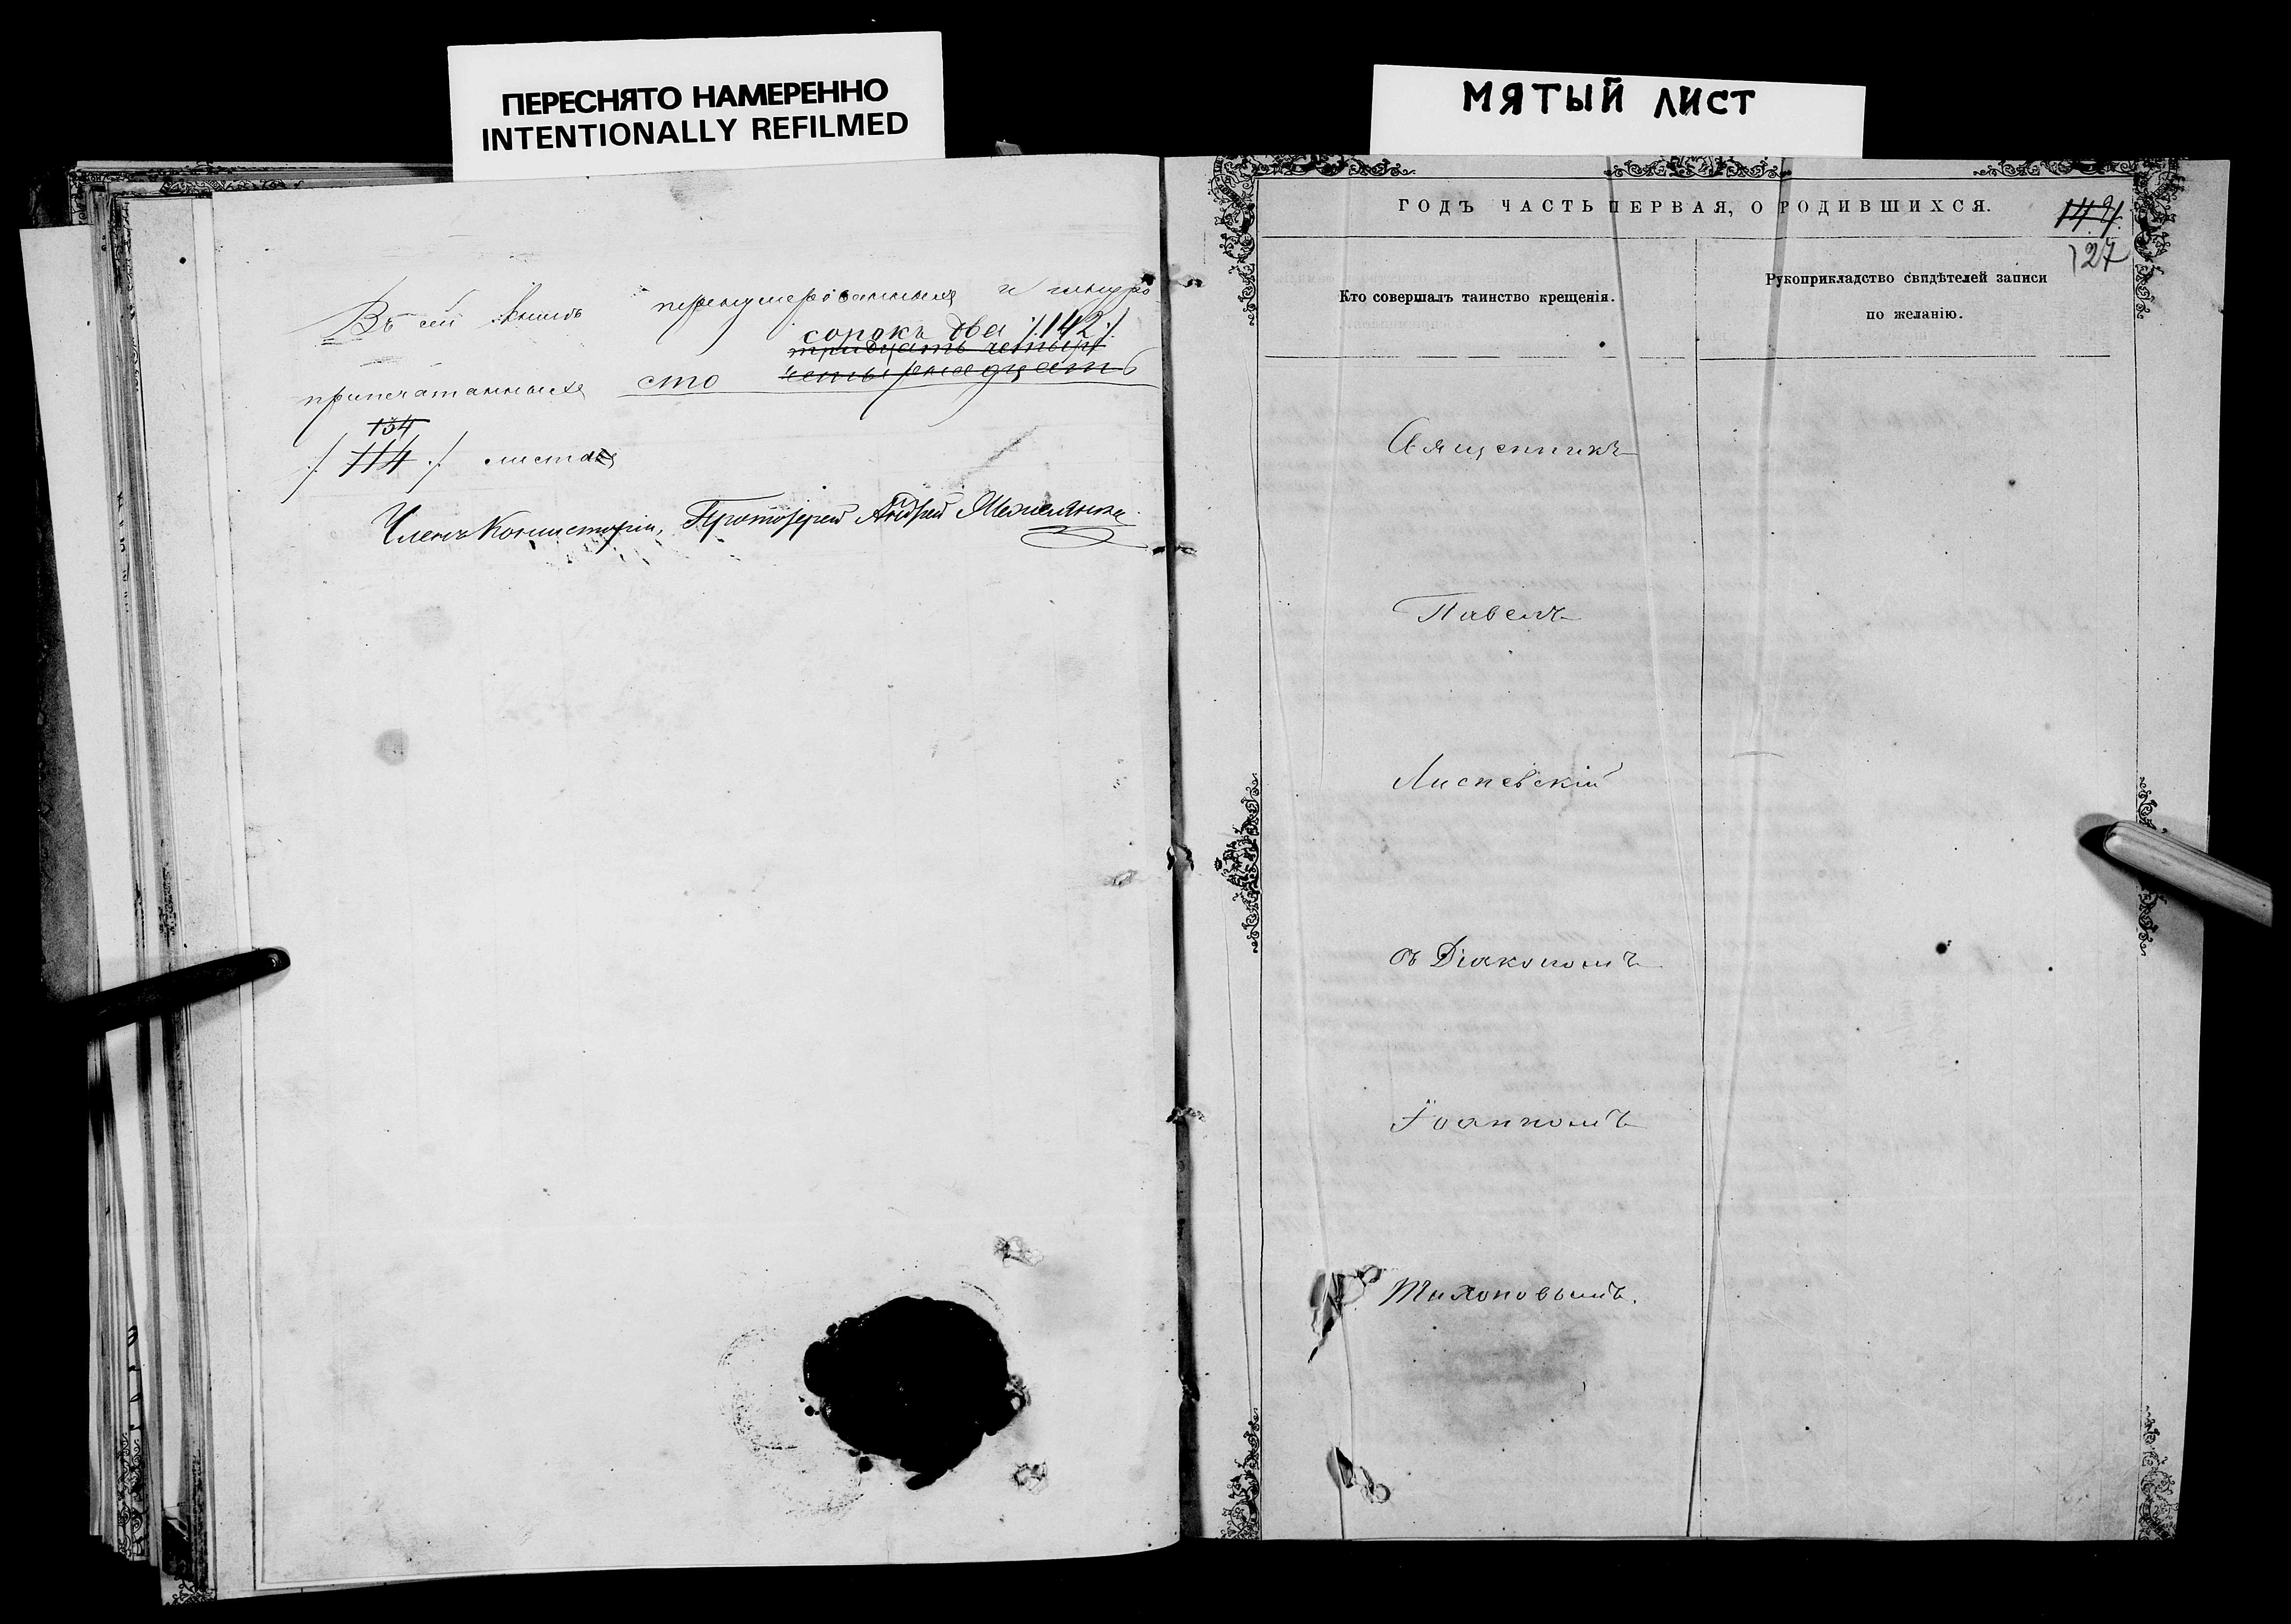 ПЕРЕСНЯТО НАМЕРЕННО
INTENTIONALLY REFILMED
МЯТЫЙ ЛИСТ
Въ сей книгѣ перенумерованныхъ и шнуро
сорокъ два ./.142./.
тридцать четыре
припечатанныхъ сто четырнадцать
134
./. 114 ./. листовъ
Членъ Консисторіи, Протоіерей Андрей
ГОДЪ ЧАСТЬ ПЕРВАЯ, О РОДИВШИХСЯ.
127
Кто совершалъ таинство крещенія.
Рукоприкладство свидѣтелей записи
по желанію.
Священникъ
Павелъ
Лисневскій
съ Діакономъ
Іоанномъ
Тихоновымъ.